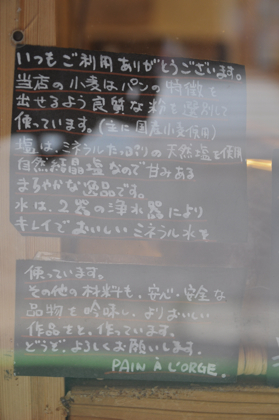 いつもご利用ありがとうございます。
当店の小麦はパンの特徴を
出せるよう良質な粉を選別して
使っています。(主に国産小麦使用)
塩は、ミネラルたっぷりの天然塩を使用
自然結晶塩なので甘みある
まろやかな逸品です。
水は、2器の浄水器により
キレイでおいしいミネラル水を
使っています。
その他の材料も、安心・安全な
品物を吟味し、よりおいしい
作品をと、作っています。
どうぞ、よろしくお願いします。
PAIN À L'ORGE.